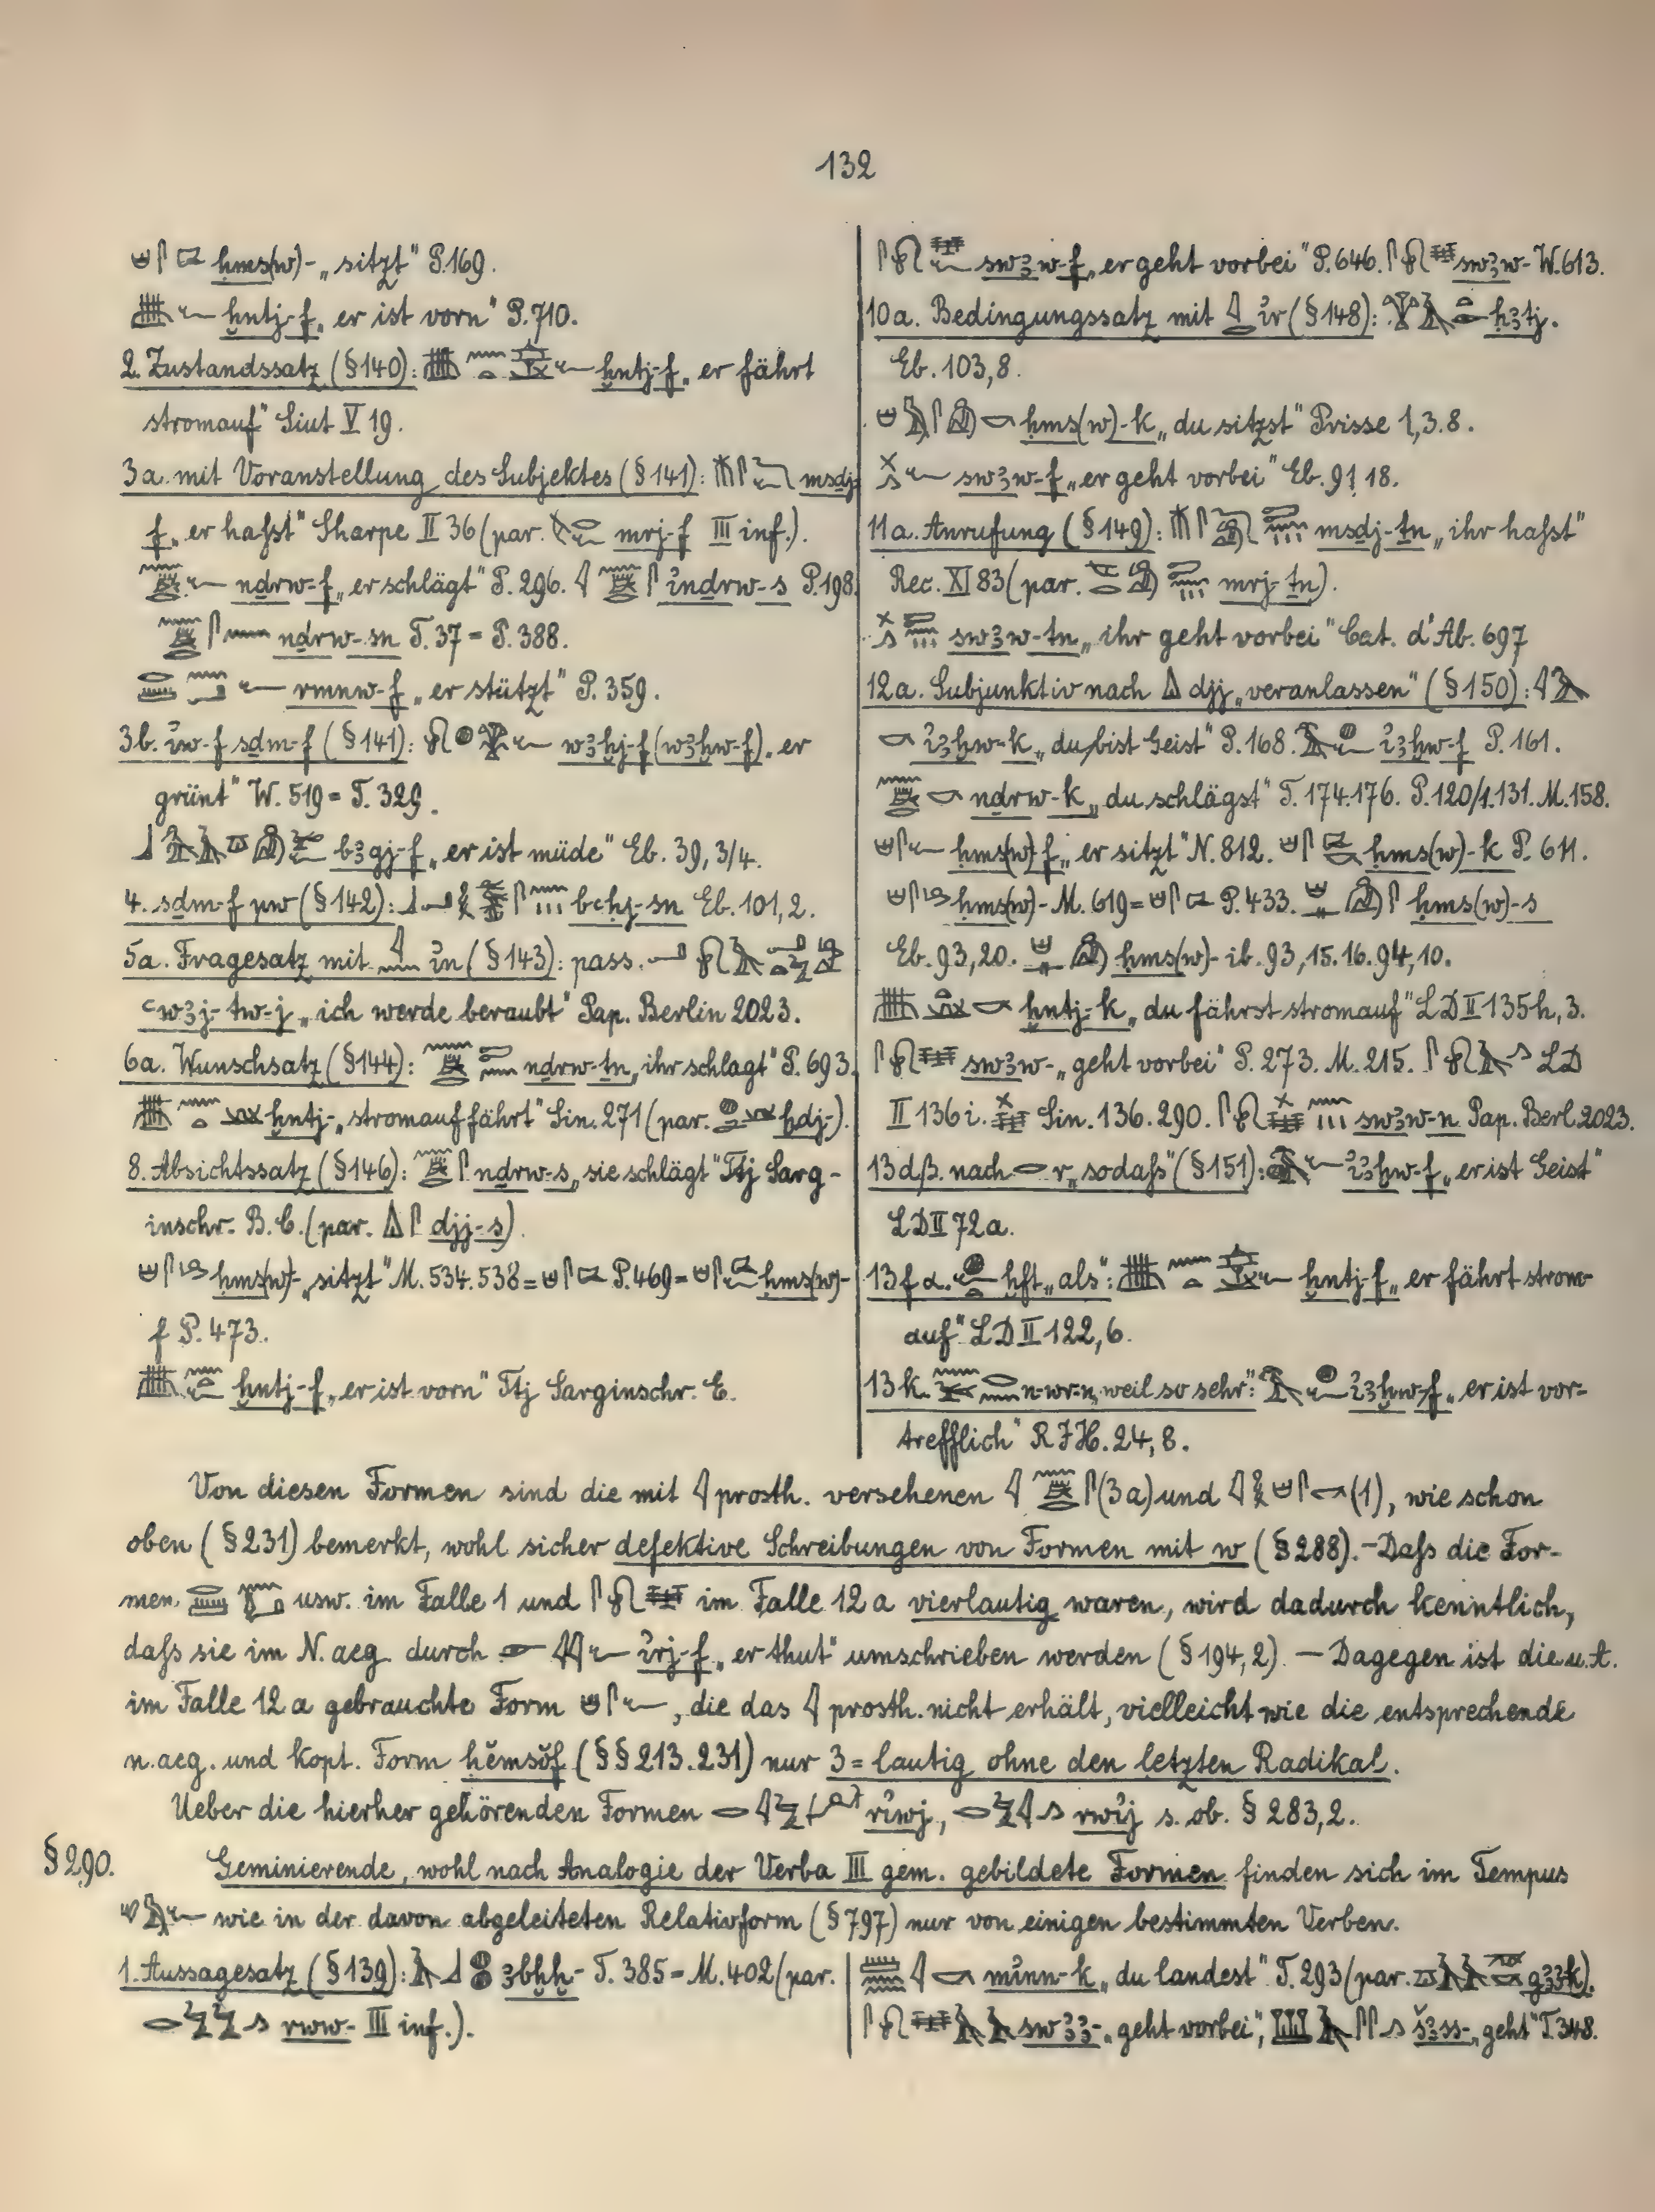 132
ḥms(w)- „sitzt" P. 169.
ḫntj-f „er ist vorn" P. 710.
2. Zustandssatz (§ 140): ḫntj-f „er fährt
stromauf" Siut V 19.
3a. mit Voranstellung des Subjektes (§ 141): msḏj-
f „er haßt" Sharpe II 36 (par. mrj-f III inf.).
nḏrw-f „er schlägt" P. 296. i҆nḏrw-s P. 198.
nḏrw-sn T. 37 = P. 388.
rmnw-f „er stützt" P. 359.
3b. i҆w-f sḏm-f (§ 141): wꜣḫj-f (wꜣḫw-f) „er
grünt" W. 519 = T. 329.
bꜣgj-f „er ist müde" Eb. 39, 3/4.
4. sḏm-f pw (§ 142): bꜥḥj-sn Eb. 101, 2.
5a. Fragesatz mit i҆n (§ 143): pass.
ꜥwꜣj-tw-j „ich werde beraubt" Pap. Berlin 2023.
6a. Wunschsatz (§ 144): nḏrw-ṯn „ihr schlagt" P. 693.
ḫntj- „stromauf fährt" Sin. 271 (par. ḫdj-).
8. Absichtssatz (§ 146): nḏrw-s „sie schlägt" Ttj Sarg-
inschr. B. C. (par. djj-s).
ḥms(w)- „sitzt" M. 534. 538 = P. 469 = ḥms(w)-
f P. 473.
ḫntj-f „er ist vorn" Ttj Sarginschr. E.
swꜣw-f „er geht vorbei" P. 646. swꜣw- W. 613.
10a. Bedingungssatz mit i҆r (§ 148): ḥꜣtj.
Eb. 103, 8.
ḥms(w)-k „du sitzst" Prisse 1, 3. 8.
swꜣw-f „er geht vorbei" Eb. 91 18.
11a. Anrufung (§ 149): msḏj-ṯn „ihr haßt"
Rec. XI 83 (par. mrj-ṯn).
swꜣw-tn „ihr geht vorbei" Cat. d'Ab. 697
12a. Subjunktiv nach djj „veranlassen" (§ 150):
i҆ꜣḫw-k „du bist Geist" P. 168. i҆ꜣḫw-f P. 161.
nḏrw-k „du schlägst" T. 174. 176. P. 120/1. 131. M. 158.
ḥms(w)-f „er sitzt" N. 812. ḥms(w)-k P. 611.
ḥms(w)- M. 619 = P. 433. ḥms(w)-s
Eb. 93, 20. ḥms(w)- ib. 93, 15. 16. 94, 10.
ḫntj-k „du fährst stromauf" LD II 135h, 3.
swꜣw- „geht vorbei" P. 273. M. 215. LD
II 136 i. Sin. 136. 290. swꜣw-n Pap. Berl. 2023.
13dβ. nach r „sodaß" (§ 151): i҆ꜣḫw-f „er ist Geist"
LD II 72a.
13f α. ḫft „als": ḫntj-f „er fährt strom-
auf" LD II 122, 6.
13k. n-wr-n „weil so sehr": i҆ꜣḫw-f „er ist vor-
trefflich" RJH. 24, 8.
Von diesen Formen sind die mit prosth. versehenen (3a) und (1), wie schon
oben (§ 231) bemerkt, wohl sicher defektive Schreibungen von Formen mit w (§ 288). – Daß die For-
men usw. im Falle 1 und im Falle 12a vierlautig waren, wird dadurch kenntlich,
daß sie im N.aeg. durch i҆rj-f „er thut" umschrieben werden (§ 194, 2). – Dagegen ist die u.A.
im Falle 12a gebrauchte Form , die das prosth. nicht erhält, vielleicht wie die entsprechende
n.aeg. und kopt. Form ḥĕmsŏf (§§ 213. 231) nur 3=lautig ohne den letzten Radikal.
Ueber die hierher gehörenden Formen ri҆wj, rwi҆j s. ob. § 283, 2.
§ 290. Geminierende, wohl nach Analogie der Verba III gem. gebildete Formen finden sich im Tempus
wie in der davon abgeleiteten Relativform (§ 797) nur von einigen bestimmten Verben.
1. Aussagesatz (§ 139): ꜣbḫḫ- T. 385 = M. 402 (par.
rww- III inf.).
mi҆nn-k „du landest" T. 293 (par. gꜣꜣ-k).
swꜣꜣ- „geht vorbei", šꜣss- „geht" T. 348.